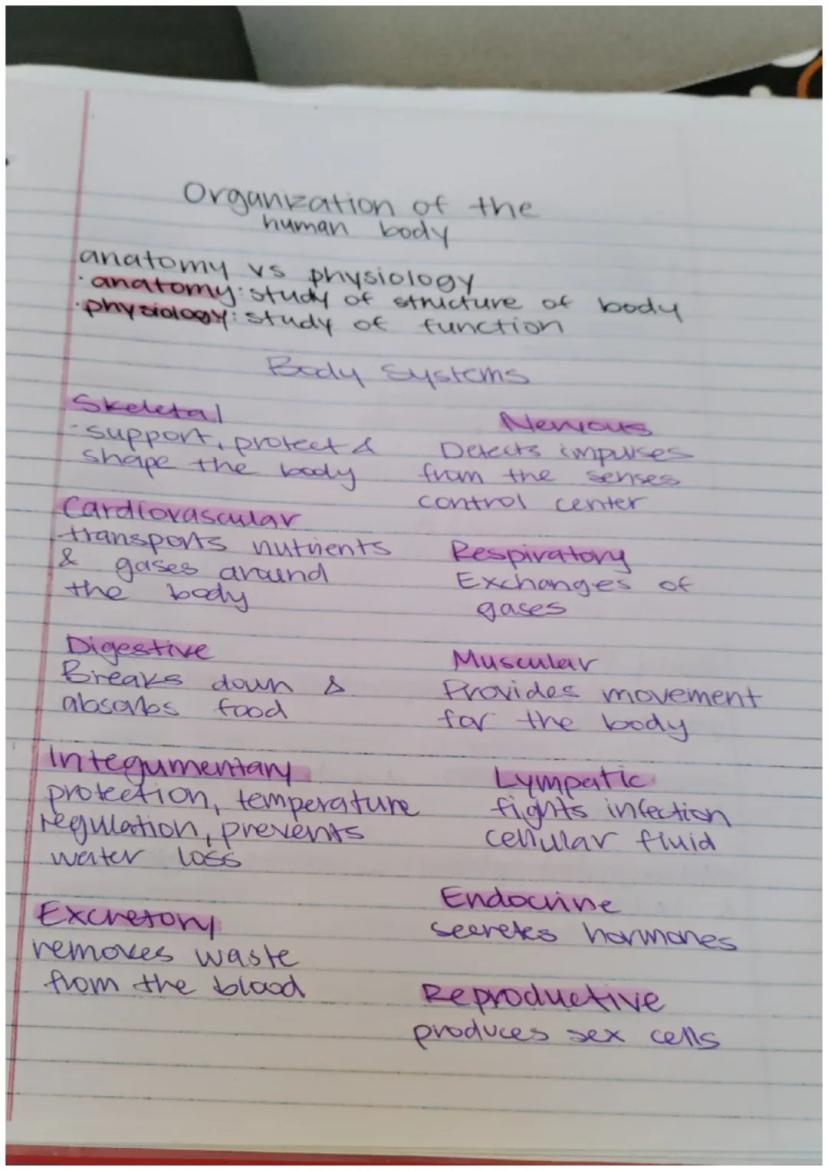 Organization of the
human body
anatomy vs physiology
· anatomy: study of structure of body
· physiology: study of function
Body Systems
Skeletal
- support, protect &
shape the body
Nervous
Detects impulses
from the senses
control center
Cardiovascular
transports nutrients
& gases around
the body
Respiratory
Exchanges of
gases
Digestive
Breaks down &
absorbs food
Muscular
Provides movement
for the body
Integumentary
protection, temperature
regulation, prevents
water loss
Lympatic
fights infection
cellular fluid
Excretory
removes waste
from the blood
Endocrine
secretes hormones
Reproductive
produces sex cells